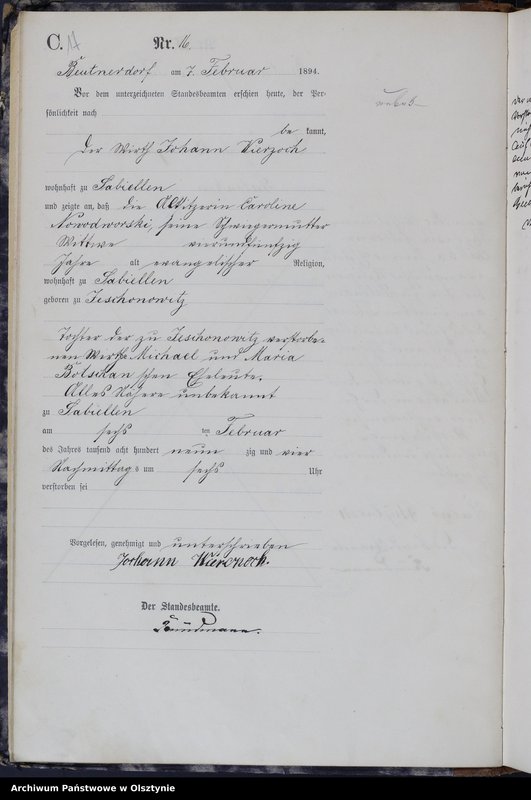 C. 14 Nr. 16.
Beutnerdorf am 7. Februar 1894.
Vor dem unterzeichneten Standesbeamten erschien heute, der Per-
sönlichkeit nach
be kannt,
der Wirth Johann Wierzoch
wohnhaft zu Sabiellen
und zeigte an, daß die Altsitzerin Caroline
Nowodworski, seine Schwiegermutter
Wittwe vierundfünfzig
Jahre alt evangelischer Religion,
wohnhaft zu Sabiellen
geboren zu Jeschonowitz
Tochter der zu Jeschonowitz verstorbe-
nen Wirth Michael und Maria
schen Eheleute.
Alles Nähere unbekannt
zu Sabiellen
am sechs ten Februar
des Jahres tausend acht hundert neun zig und vier
Nachmittags um sechs Uhr
verstorben sei
Vorgelesen, genehmigt und unterschrieben
Johann Wierzoch.
Der Standesbeamte.
Archiwum Państwowe w Olsztynie